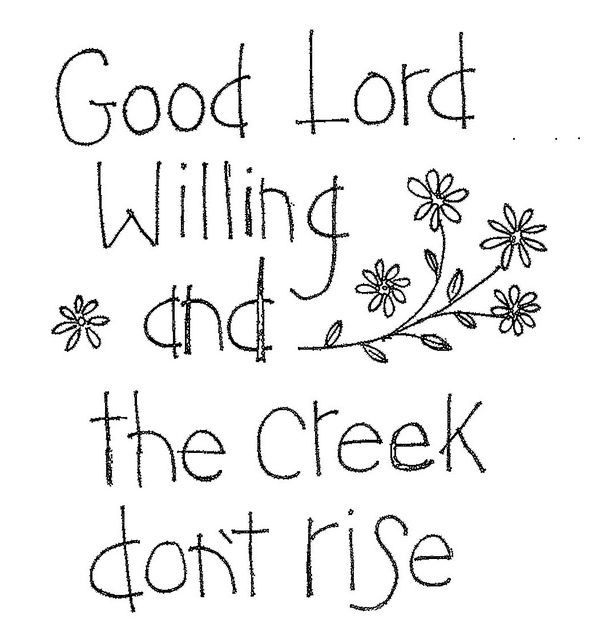 Good Lord
Willing
and
the Creek
don't rise